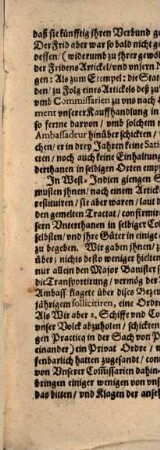 daß sie künfftig ihren Verbund ge
Der Frid aber war so bald nicht ge
dessen / (widerumb zu ihrer gewöl
der Fridens Artickel / und unsern
gen: Als zum Exempel: die Staa
den / zu Folg eines Artickels deß
umb Commissarien zu uns nach
ment unserer Kauffhandlung in
so ferne darvon / und solchem
Ambassadeur hinüber schickten /
chen / er in drey Jahren keine Satis
ten / noch auch keine Einhaltung
derthanen in selbigen Orten emp
In West-Indien giengen S
musten ihnen / nach einem Articke
restituiren / sie aber waren / laut d
den gemelten Tractat / confirmi
sern Unterthanen in selbiger Col
selbsten / und ihre Güter in einige
zu begeben. Wir gaben ihnen /
über: nichts desto weniger hielten
nur allein den Major Banister
die Transportirung / vermög der
Ambass. klagete über dises Beze
jährigem sollicitiren, eine Ordre
Als Wir aber 2. Schiffe und Co
unser Volck abzuholen / schickten
gen Practicq in der Sach von P
einander) ein Privat Ordre /
jenbarlich hatten zugesandt / con
von Unserer Commissarien dahin-
bringen einiger wenigen von un
das bitten / und Klagen der anseh